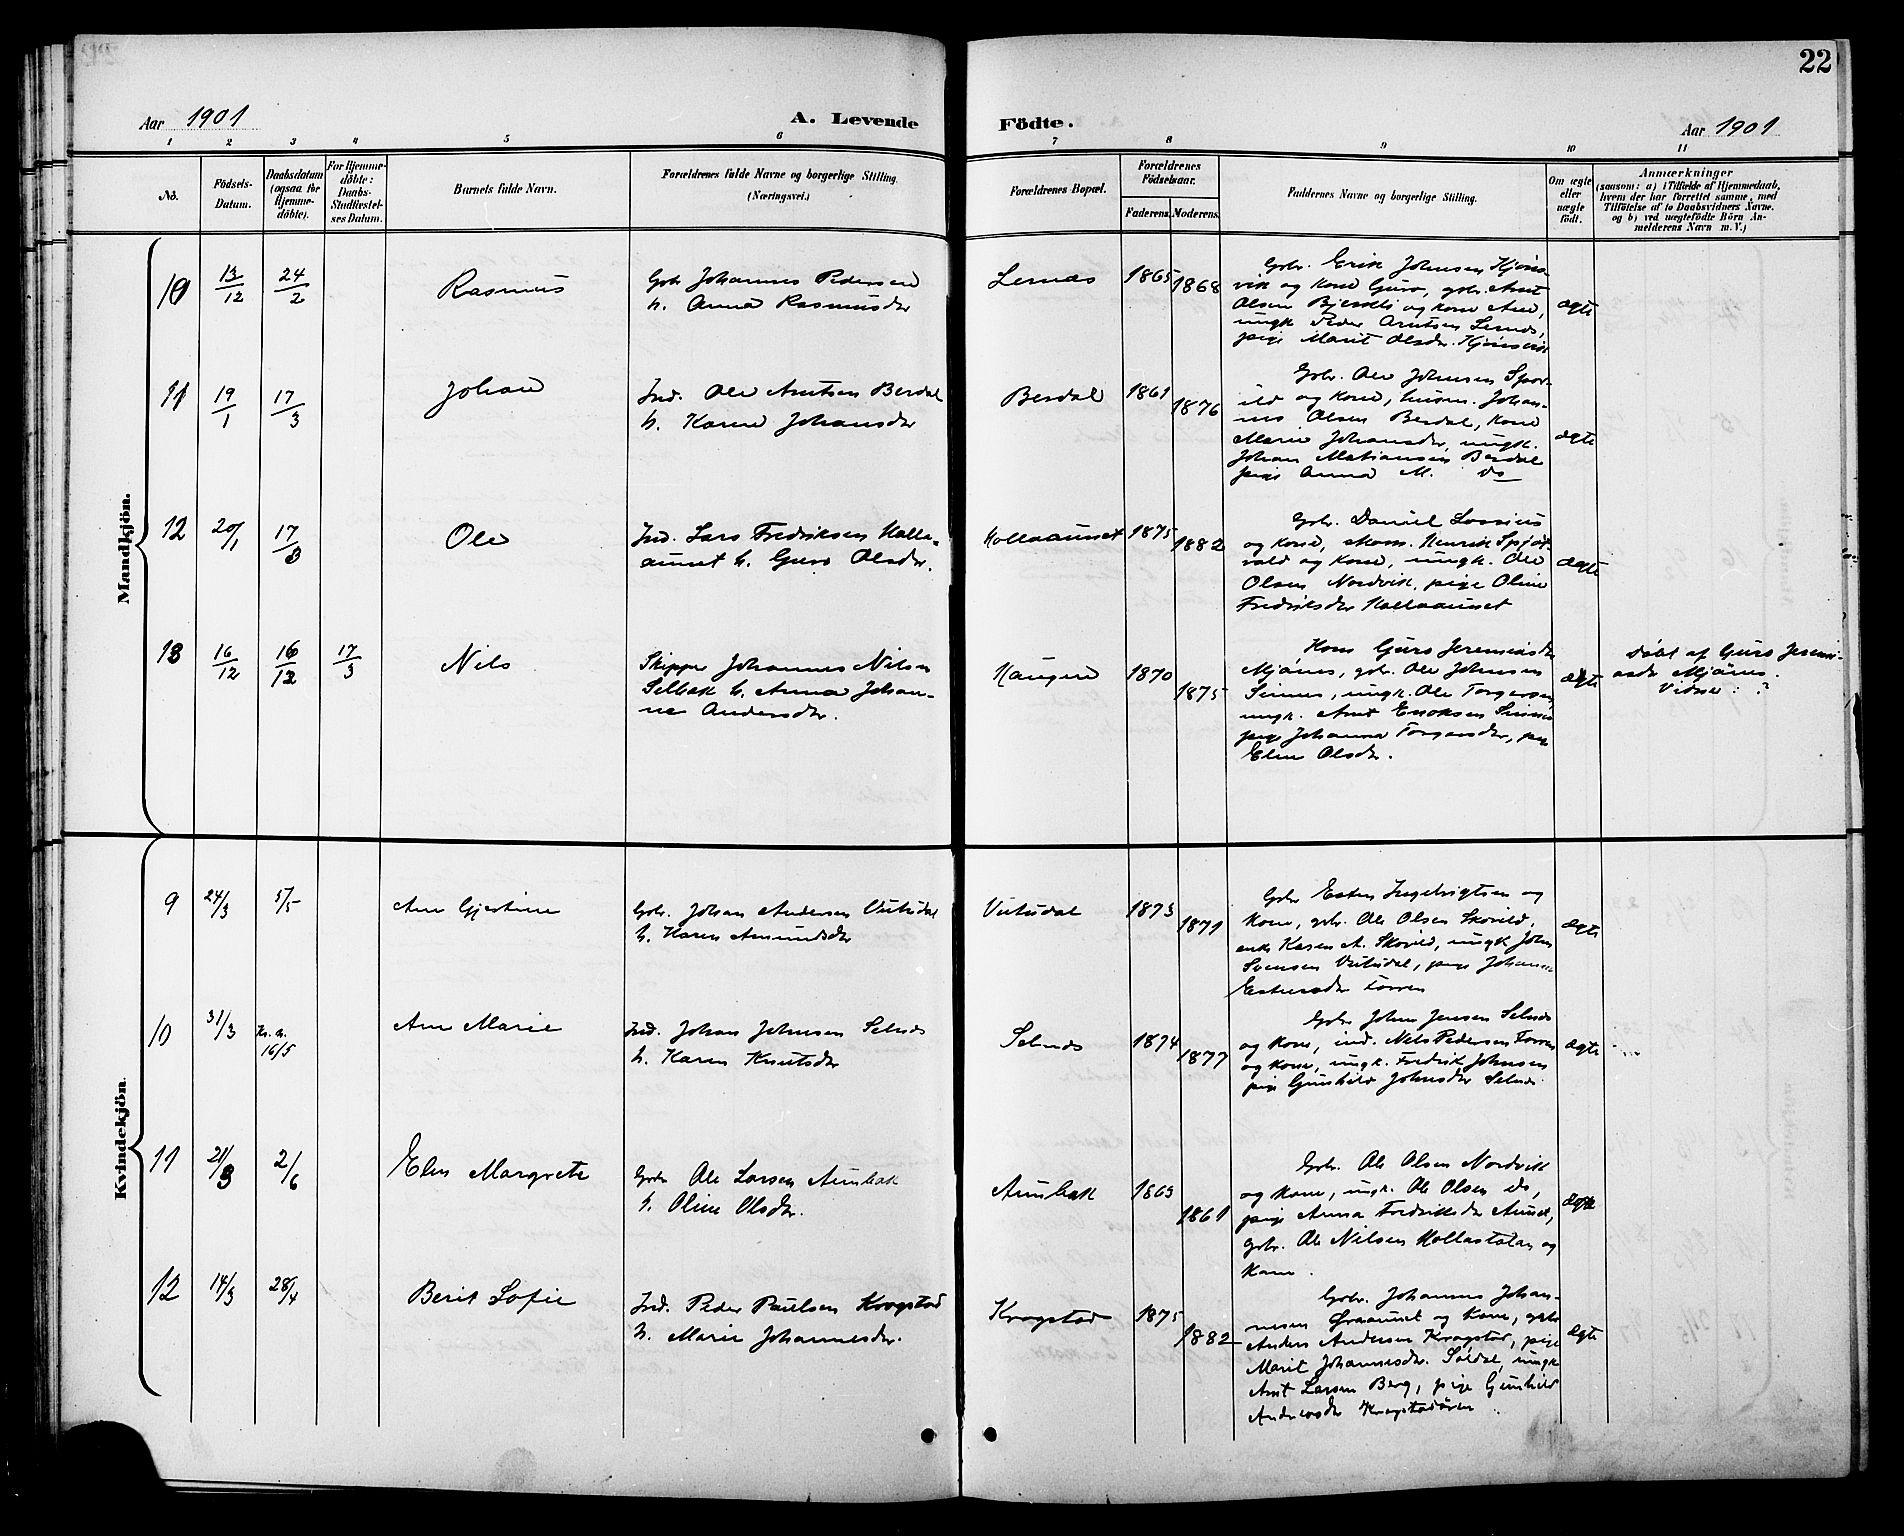 22
Aar 1901
A. Levende
Födte.
Aar 1901
1 2 3 4 5 6 7 8 9 10 11
No.
Födsels-
Datum.
Daabsdatum
(ogsaa for
Hjemme-
döbte).
For Hjemme-
döbte:
Daabs-
Stadfæstel-
ses Datum.
Barnets fulde Navn.
Forældrenes fulde Navne og borgerlige Stilling.
(Næringsvei.)
Forældrenes Bopæl.
Forældrenes
Födselsaar.
Faderens. Moderens.
Faddernes Navne og borgerlige Stilling.
Om ægte
eller
uægte
födt.
Anmærkninger
(saasom: a) i Tilfælde af Hjemmedaab,
hvem der har forrettet samme, med
Tilföielse af to Daabsvidners Navne.
og b) ved uægtefödte Börn An-
melderens Navn m. V.)
Mandkjön.
10 13/12 24/2 Rasmus
Gbr Johannes Pedersen
h. Anna Rasmusdr
Lernæs 1865 1868
Gbr. Erik Johnsen Kjöns-
vik og Kone Guro, gbr. Arnt
Olsen Bjerkli og Kone Ane,
ungk Peder Arntsen Lernæs,
pige Marit Olsdr. Kjönsvik
ægte
11 19/1 17/3 Johan
Ind. Ole Arntsen Berdal
h. Karen Johansdr
Berdal 1861 1876
Gbr. Ole Johnsen Skov-
ild og Kone, husm. Johan-
nes Olsen Berdal, Kone
Marie Johansdr, ungk.
Johan Mathiansen Berdal
pige Anna M. ds
ægte
12 20/1 17/3 Ole
Ind. Lars Fredriksen Holla-
aunet h. Guro Olsdr.
Hollaaunet 1875 1882
Gbr. Daniel Lossius
og Kone, skom. Henrik Spjöt-
vold og Kone, ungk. Ole
Olsen Nordvik, pige Oline
Fredriksdr Hollaaunet
ægte
13 16/12 16/12 17/3 Nils
Skipper Johannes Nilsen
Selbæk h. Anna Johan-
ne Andersdr.
Haugen 1870 1875
Kone Guro Jeremiasdr
Mjönes, gbr. Ole Johnsen
Sinnes, ungk. Ole Torgersen,
ungk. Arnt Eriksen Sinnes
pige Johanna Torgersdr, pige
Elen Olsdr.
ægte
Döbt af Guro Jeremi-
asdr Mjönes.
Vidner: ?
Kvindekjön.
9 24/3 5/5 Ane Gjertine
Gbr. Johan Andersen Vutudal
h. Karen Amundsdr
Vutudal 1873 1871
Gbr Esten Ingebrigtsen og
Kone, gbr. Ole Olsen Skovild,
enke Karen A. Skovild, ungk John
Svensen Vutudal, pige Johanna
Estensdr Torren
ægte
10 31/3 Kr. h. 16/5 Ane Marie
Ind. Johan Johnsen Selnæs
h. Karen Knutsdr
Selnæs 1874 1877
Gbr John Jensen Selnæs
og Kone, ind. Nils Pedersen Torren
og Kone, ungk. Fredrik Johnsen
pige Gunhild Johnsdr Selnæs.
ægte
11 21/3 2/6 Elen Margrete
Gbr Ole Larsen Aunbak
h. Oline Olsdr.
Aunbak 1863 1861
Gbr. Ole Olsen Nordvik
og Kone, ungk. Ole Olsen ds,
pige Anna Fredriksdr Aunet,
gbr. Ole Nilsen Hollastølan og
Kone.
ægte
12 14/3 28/4 Berit Sofie
Ind. Peder Paulsen Krogstad
h. Marie Johannesdr.
Krogstad 1875 1882
Gbr. Johannes Johan-
nesen Øraaunet og Kone, gbr
Anders Andersen Krogstad, pige
Marit Johannesdr. Södal, ungk
Arnt Larsen Berg, pige Gunhild
Andersdr Krogstadören.
ægte